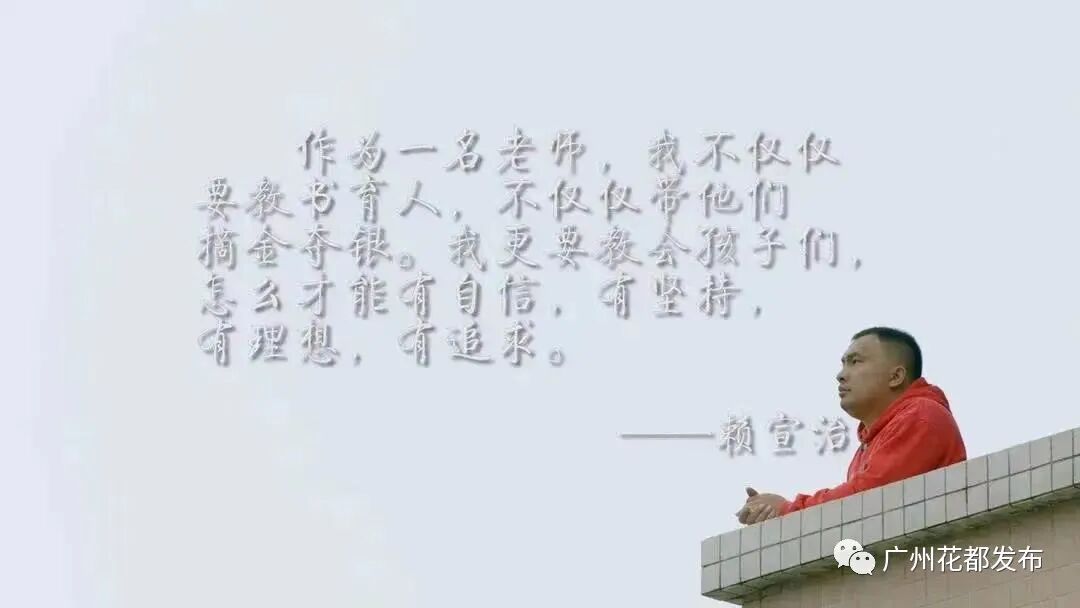 作为一名老师，我不仅仅
要教书育人，不仅仅带他们
摘金夺银。我更要教会孩子们，
怎么才能有自信，有坚持，
有理想，有追求。
——赖宣治
广州花都发布